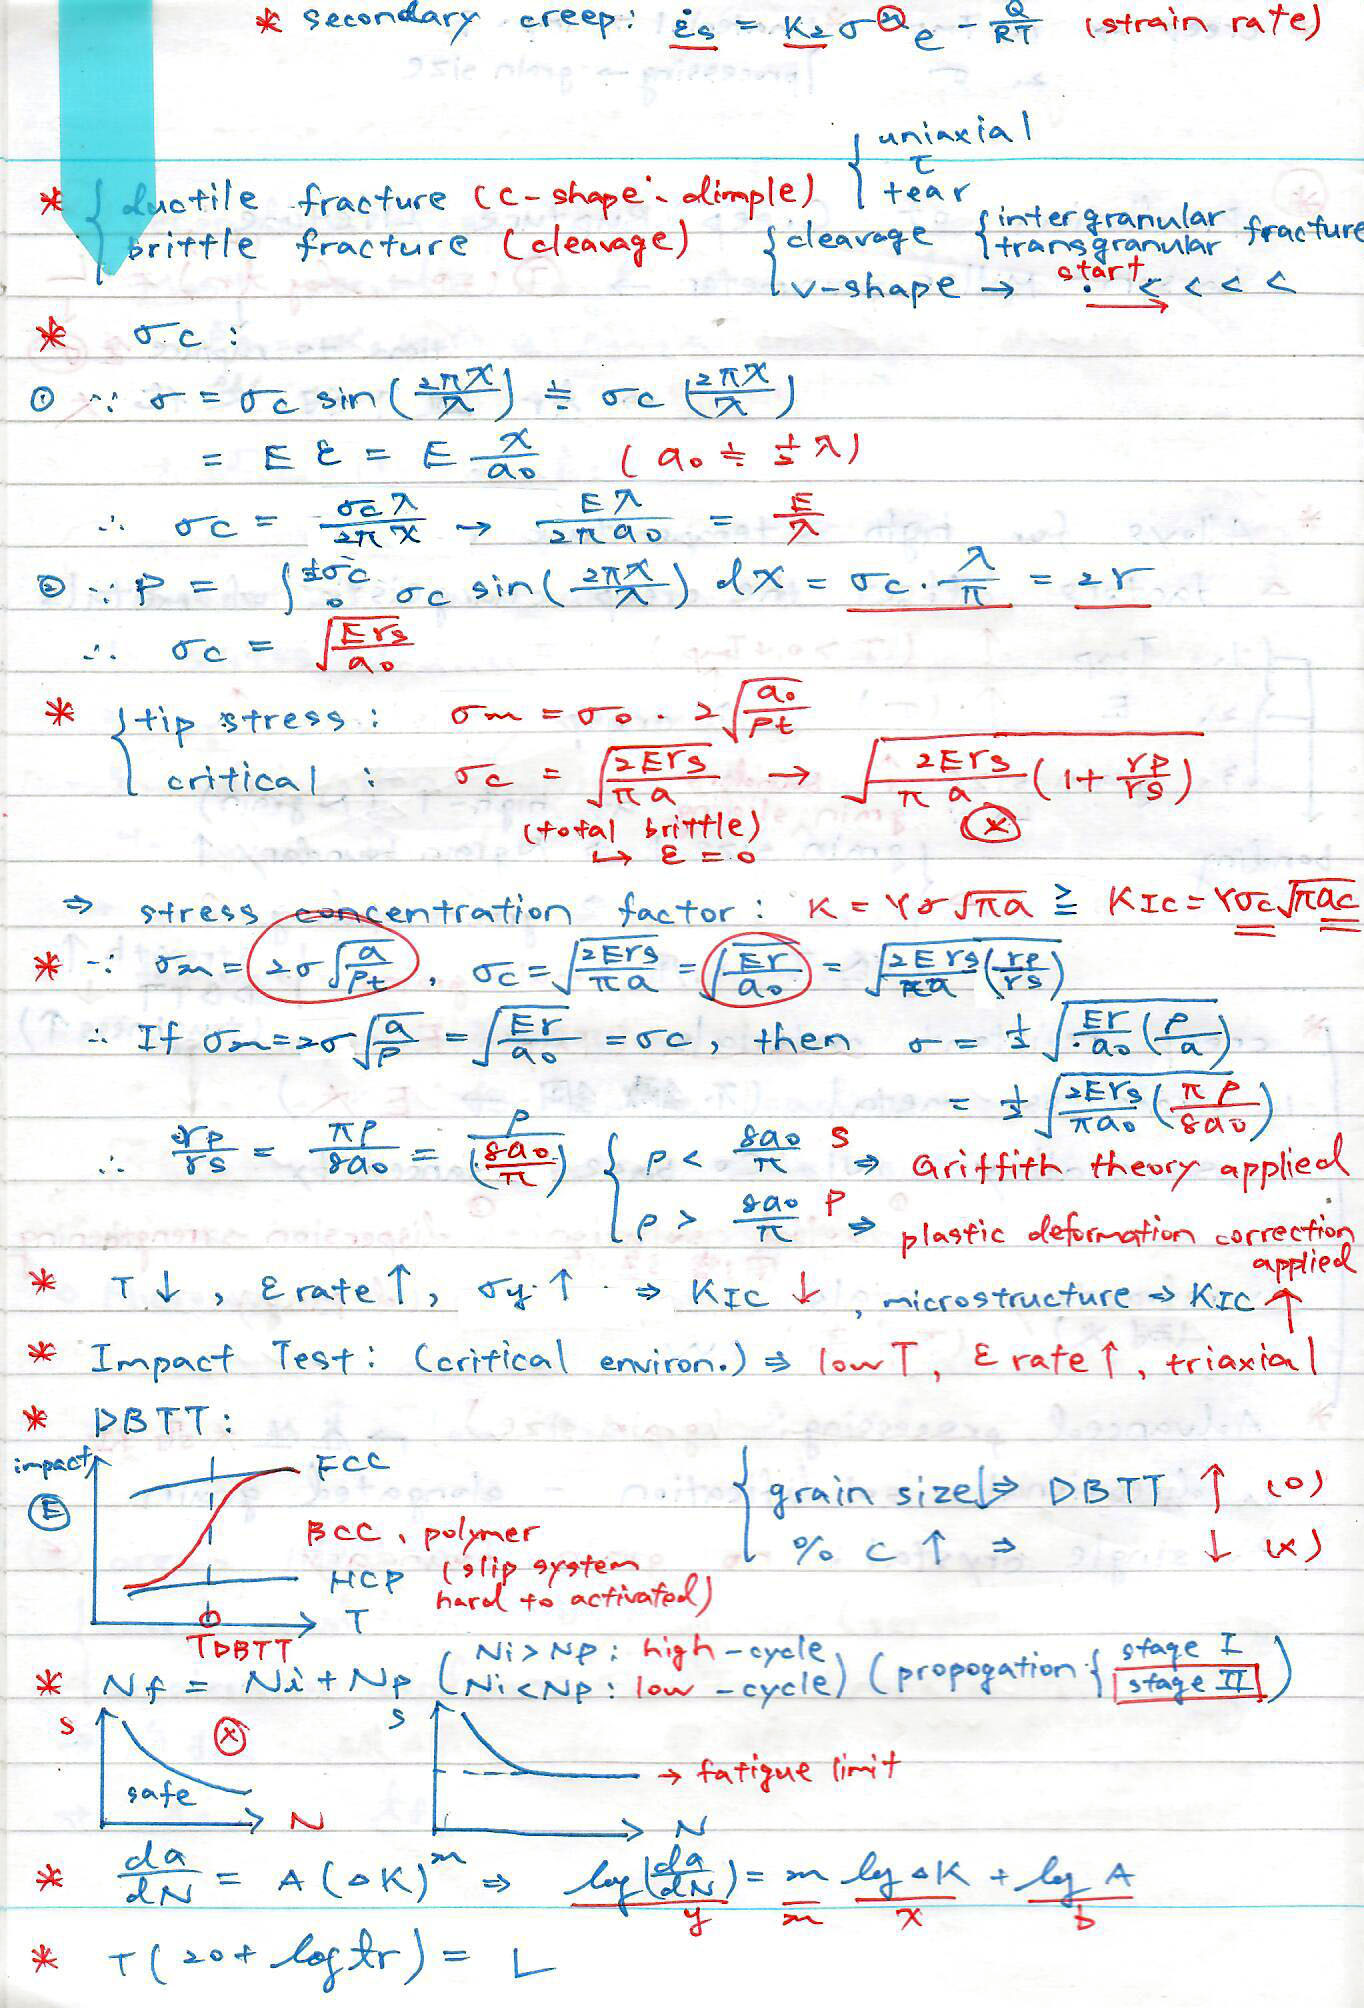 * secondary creep: ε̇s = K2 σ^n e - Q/RT (strain rate)
* { ductile fracture (c-shape、dimple) { uniaxial
τ
tear
brittle fracture (cleavage) { cleavage { intergranular
transgranular fracture
v-shape → start · < < < <
* σc :
① ∵ σ = σc sin(2πx/λ) ≒ σc (2πx/λ)
= E ε = E x/a0 (a0 ≒ ½ λ)
∴ σc = σcλ/2πx → Eλ/2πa0 = E/π
② ∵ P = ∫0 σc sin(2πx/λ) dx = σc · λ/π = 2r
∴ σc = √(Ers/a0)
* { tip stress : σm = σ0 · 2√(a0/ρt)
critical : σc = √(2Ers/πa) → √(2Ers/πa (1 + rp/rs))
(total brittle) (x)
↳ ε = 0
⇒ stress concentration factor : K = Yσ√πa ≧ KIC = Yσc√πac
* ∵ σm = 2σ√(a/ρt), σc = √(2Ers/πa) = √(Er/a0) = √(2Ers/πa (rp/rs))
∴ If σm = 2σ√(a/ρ) = √(Er/a0) = σc, then σ = ½ √(Er/a0 (ρ/a))
= ½ √(2Ers/πa0 (πρ/8a0))
∴ rp/rs = πρ/8a0 = ρ/(8a0/π) { ρ < 8a0/π S ⇒ Griffith theory applied
ρ > 8a0/π P ⇒ plastic deformation correction
applied
* T↓, ε rate ↑, σy ↑ ⇒ KIC ↓, microstructure ⇒ KIC ↑
* Impact Test: (critical environ.) ⇒ low T, ε rate ↑, triaxial
* DBTT:
impact
E
FCC
BCC、polymer
HCP (slip system
hard to activated)
T
TDBTT
{ grain size↓ ⇒ DBTT ↑ (o)
% C ↑ ⇒ ↓ (x)
* Nf = Ni + Np (Ni > Np : high-cycle
Ni < Np : low-cycle) (propogation { stage I
stage II )
S (x) safe N
S → fatigue limit N
* da/dN = A(ΔK)^m ⇒ log(da/dN) = m log ΔK + log A
y m x b
* T(20 + log tr) = L